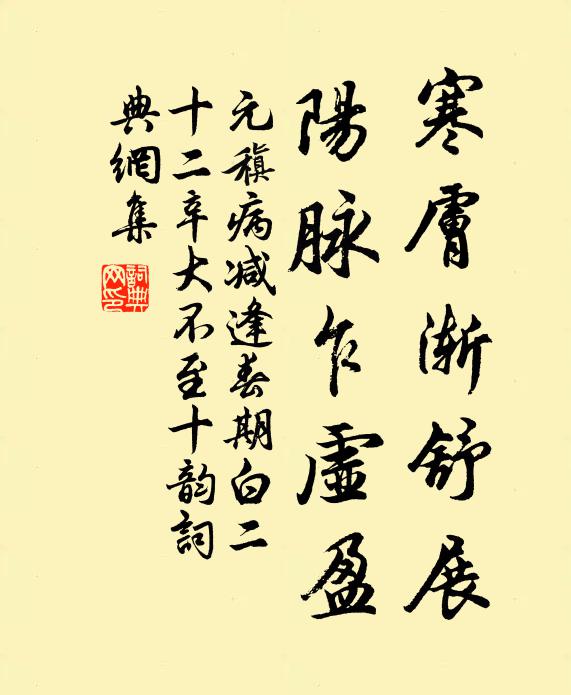 寒膚漸舒展
陽脉乍虛盈
元稹病减逢春期白二
十二辛大不至十韵詞
典網集
詞典網印